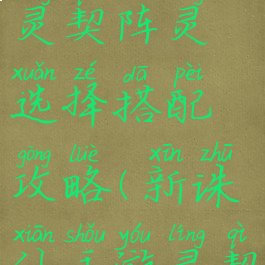 灵契阵灵
xuǎn zé dā pèi
选择搭配
gōng lüè xīn zhū
攻略(新诛
xiān shǒu yóu líng qì
仙手游灵契